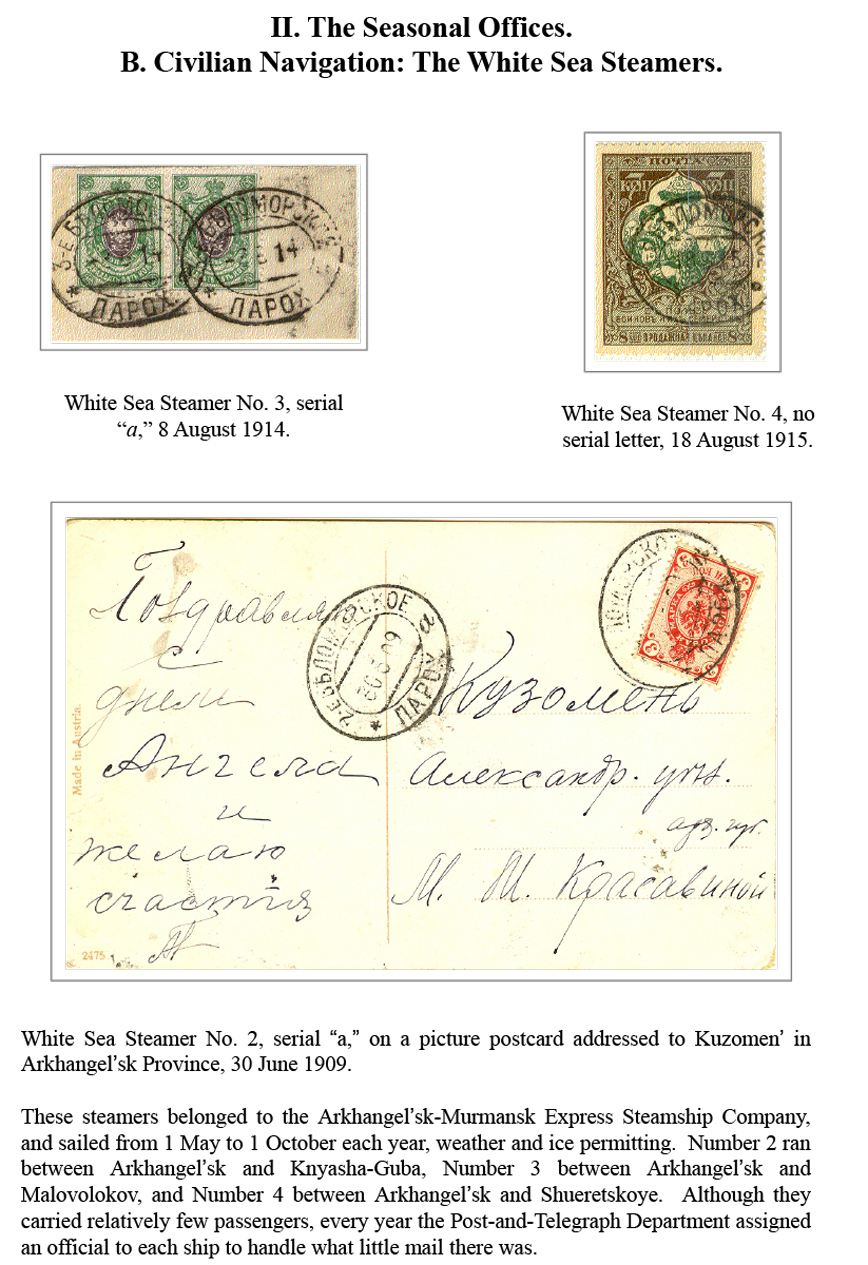 II. The Seasonal Offices.
B. Civilian Navigation: The White Sea Steamers.
ПАРОХ
14
ПАРОХ
ПОЧТА
7 КОП 7 КОП
ПАРОХ
8 ПРОДАЖНАЯ 8
White Sea Steamer No. 3, serial
“a,” 8 August 1914.
White Sea Steamer No. 4, no
serial letter, 18 August 1915.
Поздравляю
с
днем
Ангела
и
желаю
счастія
Made in Austria.
2475
2-Е БѢЛОМОРСКОЕ а
ПАРОХ
Кузомень
Александр. уѣз.
арх. губ.
М. Ш. Красавиной
White Sea Steamer No. 2, serial “a,” on a picture postcard addressed to Kuzomen’ in
Arkhangel’sk Province, 30 June 1909.
These steamers belonged to the Arkhangel’sk-Murmansk Express Steamship Company,
and sailed from 1 May to 1 October each year, weather and ice permitting. Number 2 ran
between Arkhangel’sk and Knyasha-Guba, Number 3 between Arkhangel’sk and
Malovolokov, and Number 4 between Arkhangel’sk and Shueretskoye. Although they
carried relatively few passengers, every year the Post-and-Telegraph Department assigned
an official to each ship to handle what little mail there was.